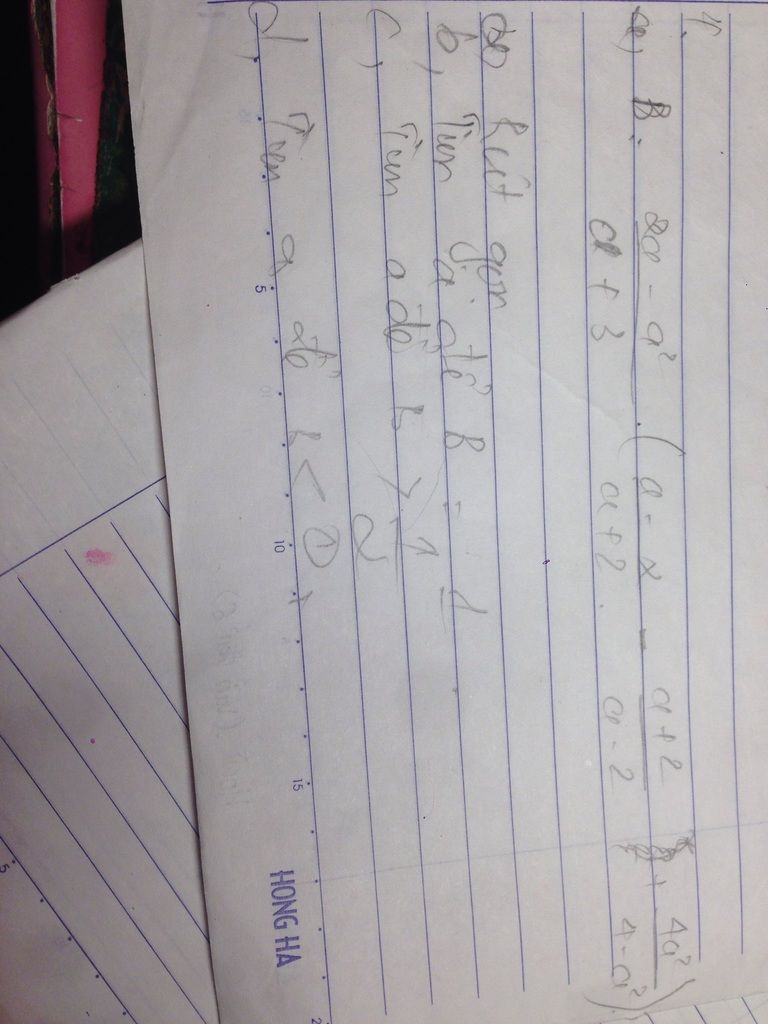 1.
a, B = \frac{2a - a^2}{a + 3} \cdot \left( \frac{a - 2}{a + 2} - \frac{a + 2}{a - 2} + \frac{4a^2}{4 - a^2} \right)
a) Rút gọn
b, Tìm a để B = 1
c, Tìm a để B > \frac{1}{2}
d, Tìm a để B < 0
5 10 15
HONG HA
5